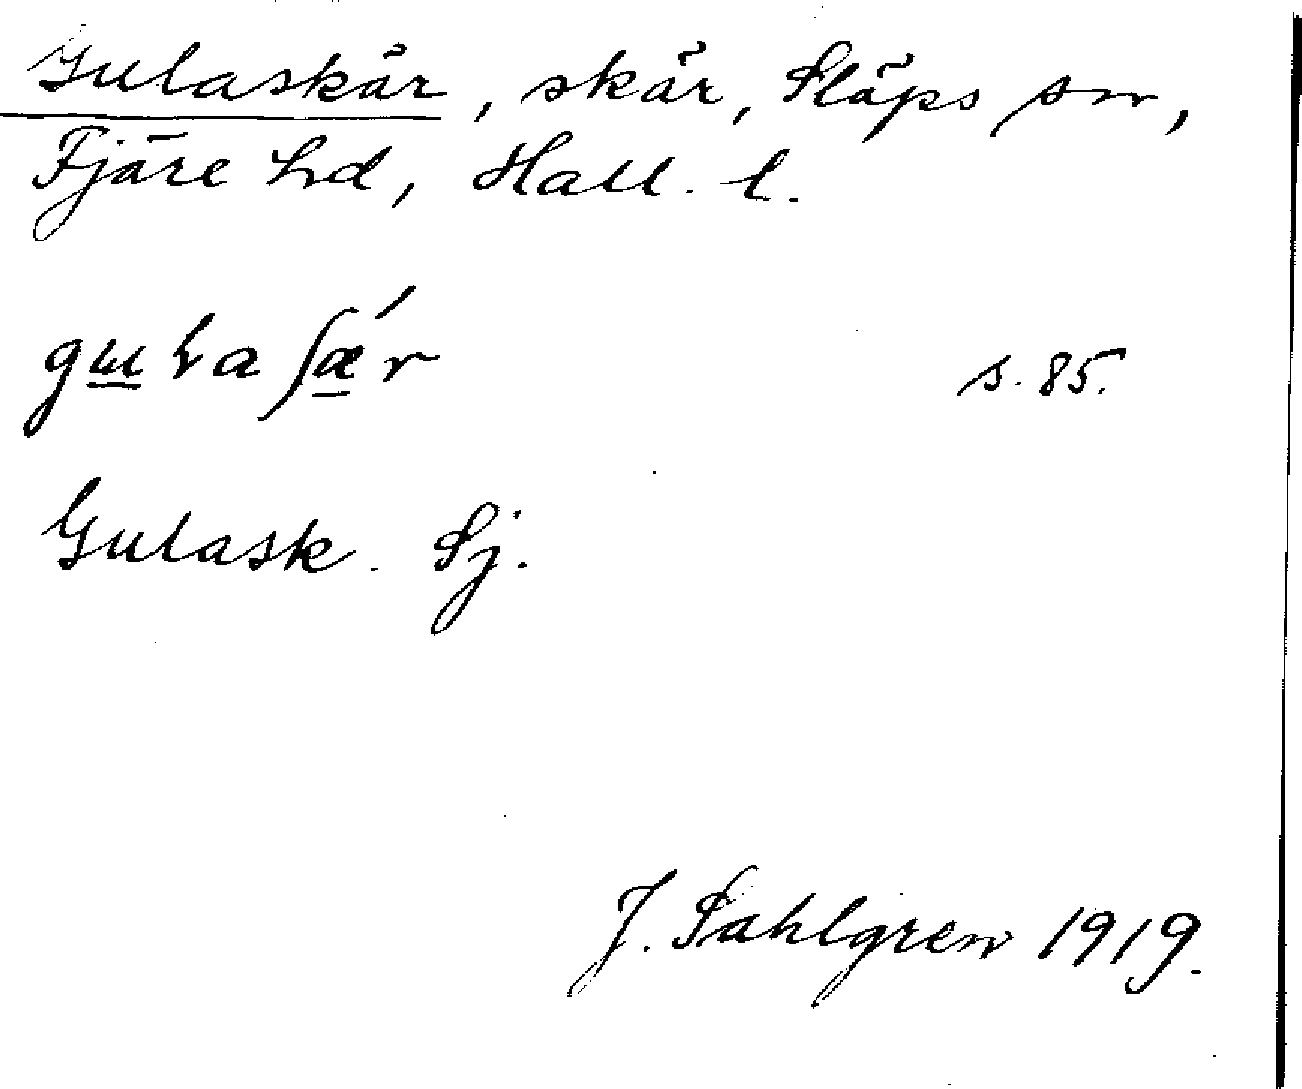 Gulaskär, skär, Släps sn,
Fjäre hd, Hall. l.
s. 85.
Gulask. Sj.
J. Sahlgren 1919.